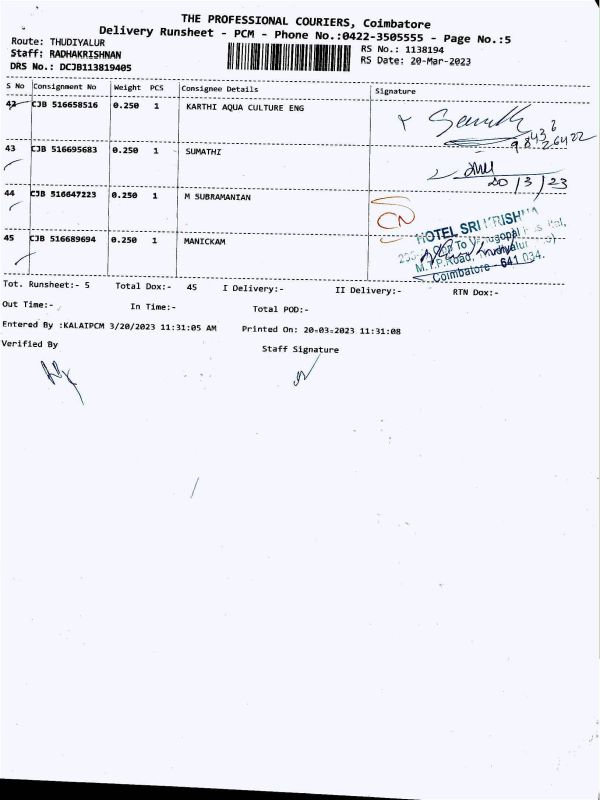 THE PROFESSIONAL COURIERS, Coimbatore
Delivery Runsheet - PCM - Phone No.:0422-3505555 - Page No.:5
Route: THUDIYALUR
RS No.: 1138194
Staff: RADHAKRISHNAN
RS Date: 20-Mar-2023
DRS No.: DCJB113819405
S No Consignment No Weight PCS Consignee Details Signature
42 CJB 516658516 0.250 1 KARTHI AQUA CULTURE ENG
43 CJB 516695683 0.250 1 SUMATHI
20/3/23
44 CJB 516647223 0.250 1 M SUBRAMANIAN
CN
45 CJB 516689694 0.250 1 MANICKAM
HOTEL SRI KRISHNA
M.T.P.Road, Thudiyalur
Coimbatore - 641 034.
Tot. Runsheet:- 5 Total Dox:- 45 I Delivery:- II Delivery:- RTN Dox:-
Out Time:- In Time:- Total POD:-
Entered By :KALAIPCM 3/20/2023 11:31:05 AM Printed On: 20-03-2023 11:31:08
Verified By Staff Signature